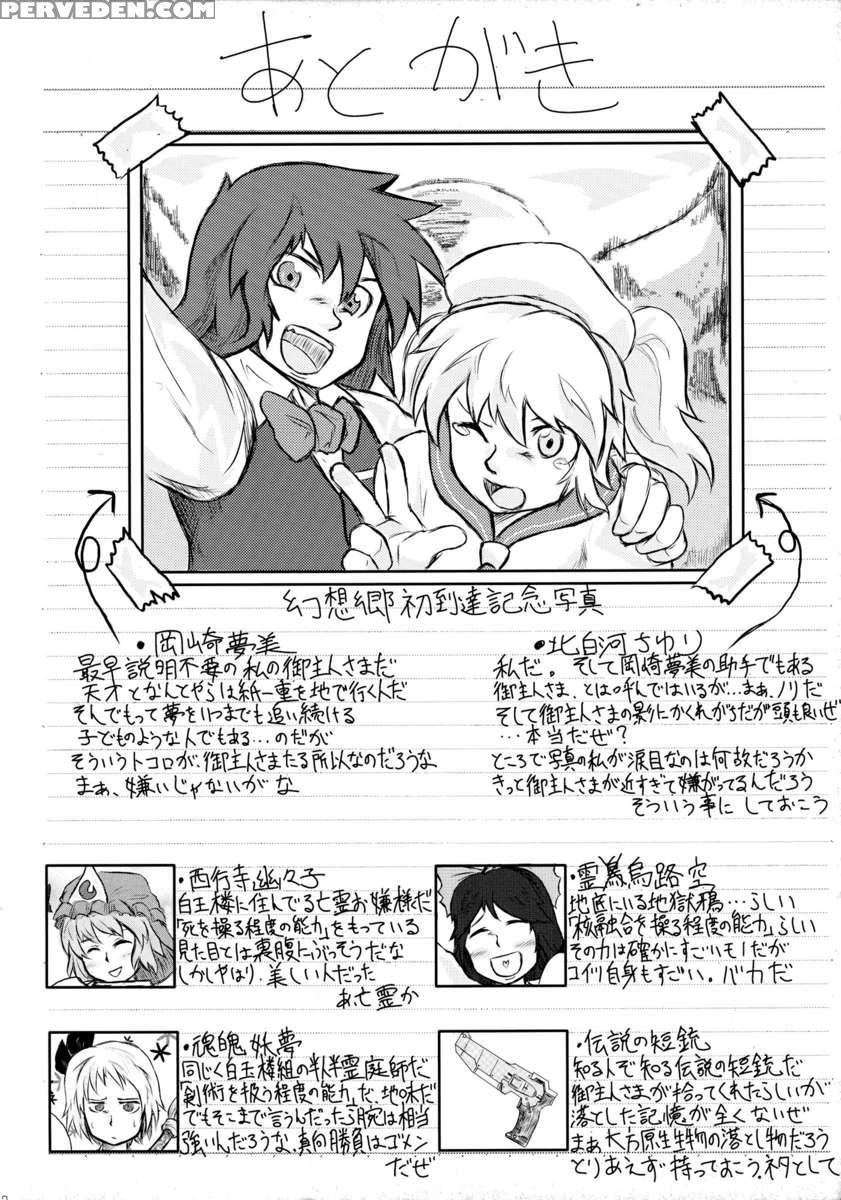 PERVEDEN.COM
あとがき
幻想郷初到達記念写真
・岡崎夢美
最早説明不要の私の御主人さまだ
天才となんとやらは紙一重を地で行く人だ
そんでもって夢をいつまでも追い続ける
子どものような人でもある…のだが
そういうトコロが、御主人さまたる所以なのだろうな
まぁ、嫌いじゃないがな
・北白河ちゆり
私だ。そして岡崎夢美の助手でもある
御主人さま、とは呼んではいるが…まぁ、ノリだ
そして御主人さまの影にかくれがちだが頭も良いぜ
…本当だぜ?
ところで写真の私が涙目なのは何故だろうか
きっと御主人さまが近すぎて嫌がってるんだろう
そういう事にしておこう
・西行寺幽々子
白玉楼に住んでる亡霊お嬢様だ
「死を操る程度の能力」をもっている
見た目とは裏腹にぶっそうだな
しかしやはり、美しい人だった
あ、亡霊か
・霊烏路空
地底にいる地獄鴉…らしい
「核融合を操る程度の能力」らしい
その力は確かにすごいモノだが
コイツ自身もすごい。バカだ
・魂魄妖夢
同じく白玉楼組の半人半霊庭師だ
「剣術を扱う程度の能力」だ、地味だ
でもそこまで言うんだったら腕は相当
強いんだろうな、真向勝負はゴメン
だぜ
・伝説の短銃
知る人ぞ知る伝説の短銃だ
御主人さまが拾ってくれたらしいが
落とした記憶が全くないぜ
まぁ大方原生生物の落とし物だろう
とりあえず持っておこう、ネタとして